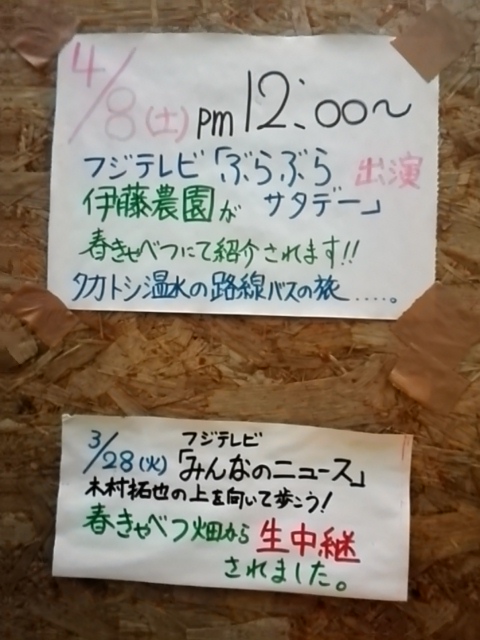 4/8(土) pm 12:00～
フジテレビ「ぶらぶら 出演
伊藤農園が サタデー」
春きゃべつにて紹介されます!!
タカトシ温水の路線バスの旅.....。
3/28(火) フジテレビ
「みんなのニュース」
木村拓也の上を向いて歩こう!
春きゃべつ畑から 生中継
されました。